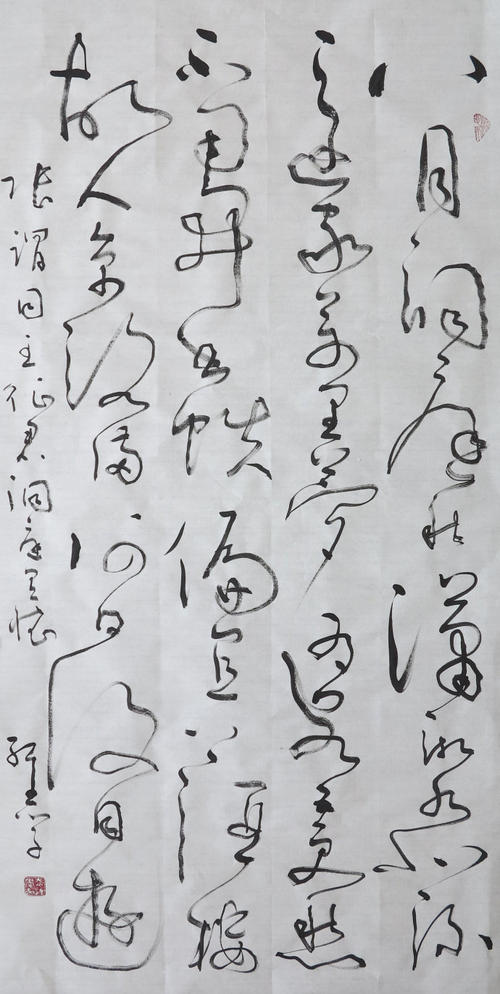 八月洞庭秋潇湘水北流
還家萬里夢為客五更愁
不用開書帙偏宜上酒樓
故人京洛滿何日復同遊
張謂同王征君洞庭有懷